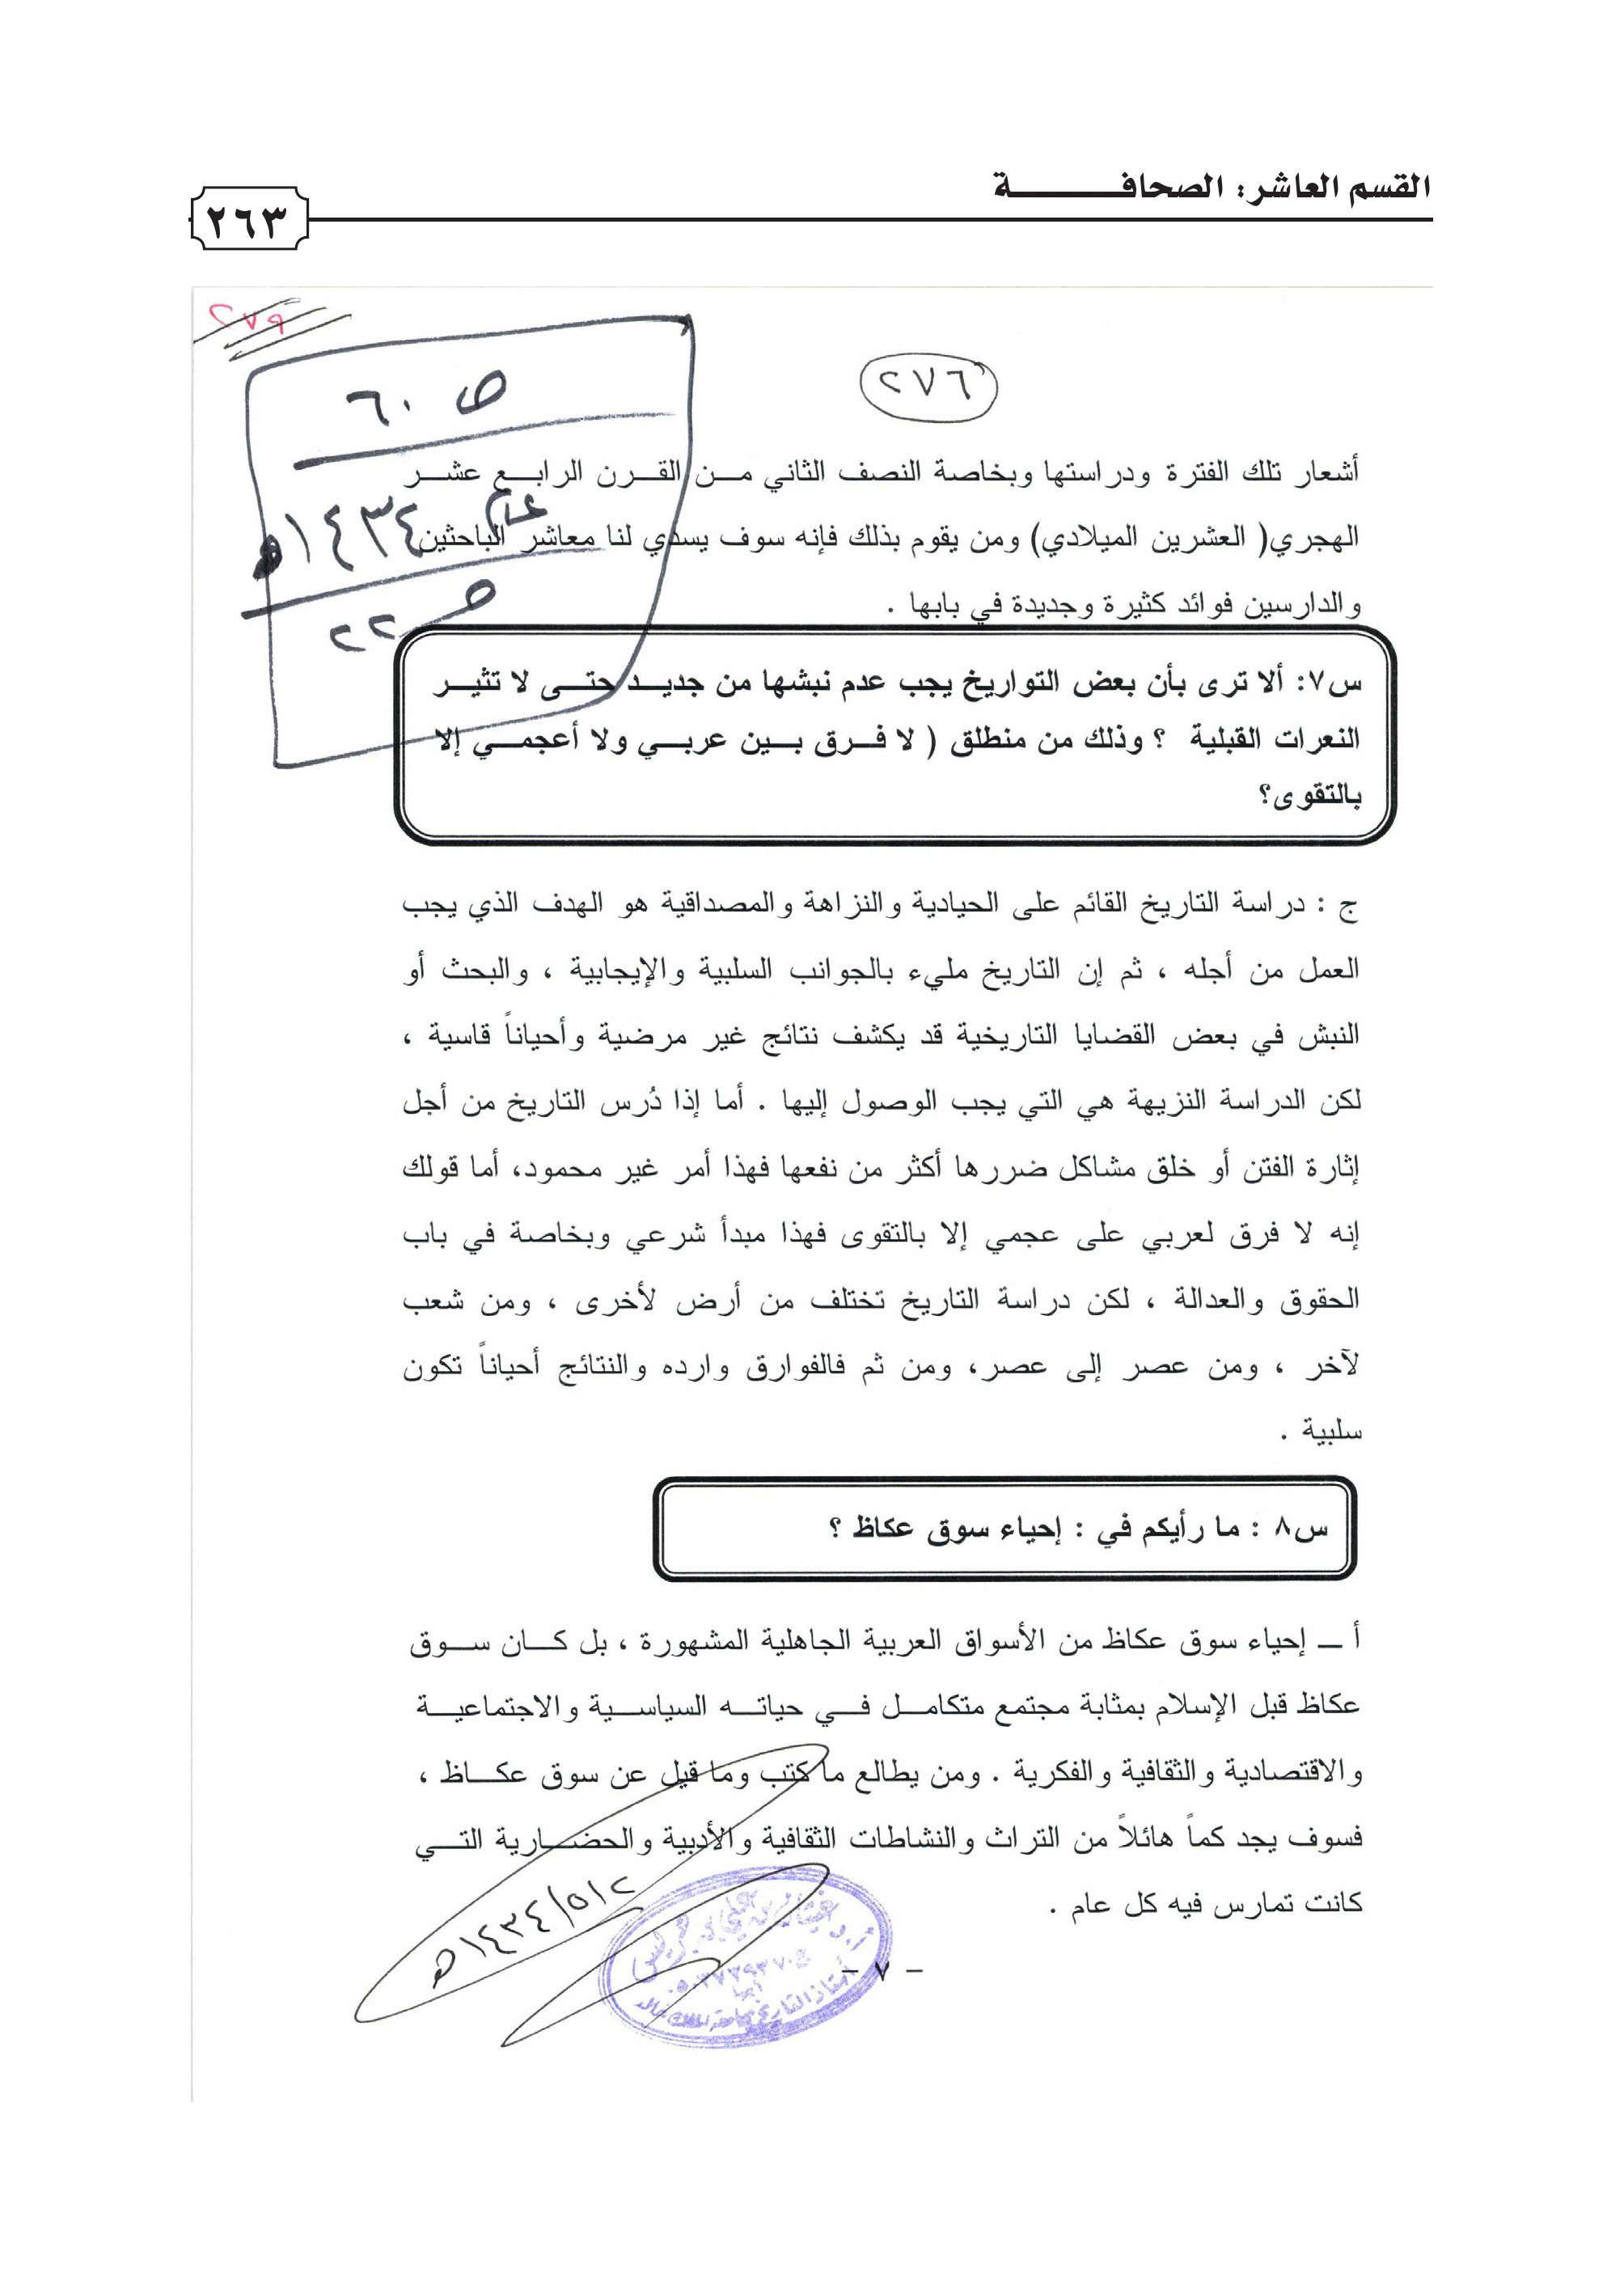 القسم العاشر: الصحافة
٢٦٣
٢٧٩
٢٧٦
ص ٦٠
عام ١٤٣٤هـ
صـ ٢٢
أشعار تلك الفترة ودراستها وبخاصة النصف الثاني من القرن الرابع عشر
الهجري( العشرين الميلادي) ومن يقوم بذلك فإنه سوف يسدي لنا معاشر الباحثين
والدارسين فوائد كثيرة وجديدة في بابها .
س٧: ألا ترى بأن بعض التواريخ يجب عدم نبشها من جديد حتى لا تثير
النعرات القبلية ؟ وذلك من منطلق ( لا فرق بين عربي ولا أعجمي إلا
بالتقوى؟
ج : دراسة التاريخ القائم على الحيادية والنزاهة والمصداقية هو الهدف الذي يجب
العمل من أجله ، ثم إن التاريخ مليء بالجوانب السلبية والإيجابية ، والبحث أو
النبش في بعض القضايا التاريخية قد يكشف نتائج غير مرضية وأحياناً قاسية ،
لكن الدراسة النزيهة هي التي يجب الوصول إليها . أما إذا دُرس التاريخ من أجل
إثارة الفتن أو خلق مشاكل ضررها أكثر من نفعها فهذا أمر غير محمود، أما قولك
إنه لا فرق لعربي على عجمي إلا بالتقوى فهذا مبدأ شرعي وبخاصة في باب
الحقوق والعدالة ، لكن دراسة التاريخ تختلف من أرض لأخرى ، ومن شعب
لآخر ، ومن عصر إلى عصر، ومن ثم فالفوارق وارده والنتائج أحياناً تكون
سلبية .
س٨ : ما رأيكم في : إحياء سوق عكاظ ؟
أ ــ إحياء سوق عكاظ من الأسواق العربية الجاهلية المشهورة ، بل كان سوق
عكاظ قبل الإسلام بمثابة مجتمع متكامل في حياته السياسية والاجتماعية
والاقتصادية والثقافية والفكرية . ومن يطالع ما كتب وما قيل عن سوق عكاظ ،
فسوف يجد كماً هائلاً من التراث والنشاطات الثقافية والأدبية والحضارية التي
كانت تمارس فيه كل عام .
١٤٣٤/٥/٢هـ
أ.د غيثان بن علي بن جريس
أبها
أستاذ التاريخ بجامعة الملك خالد
- ٧ -